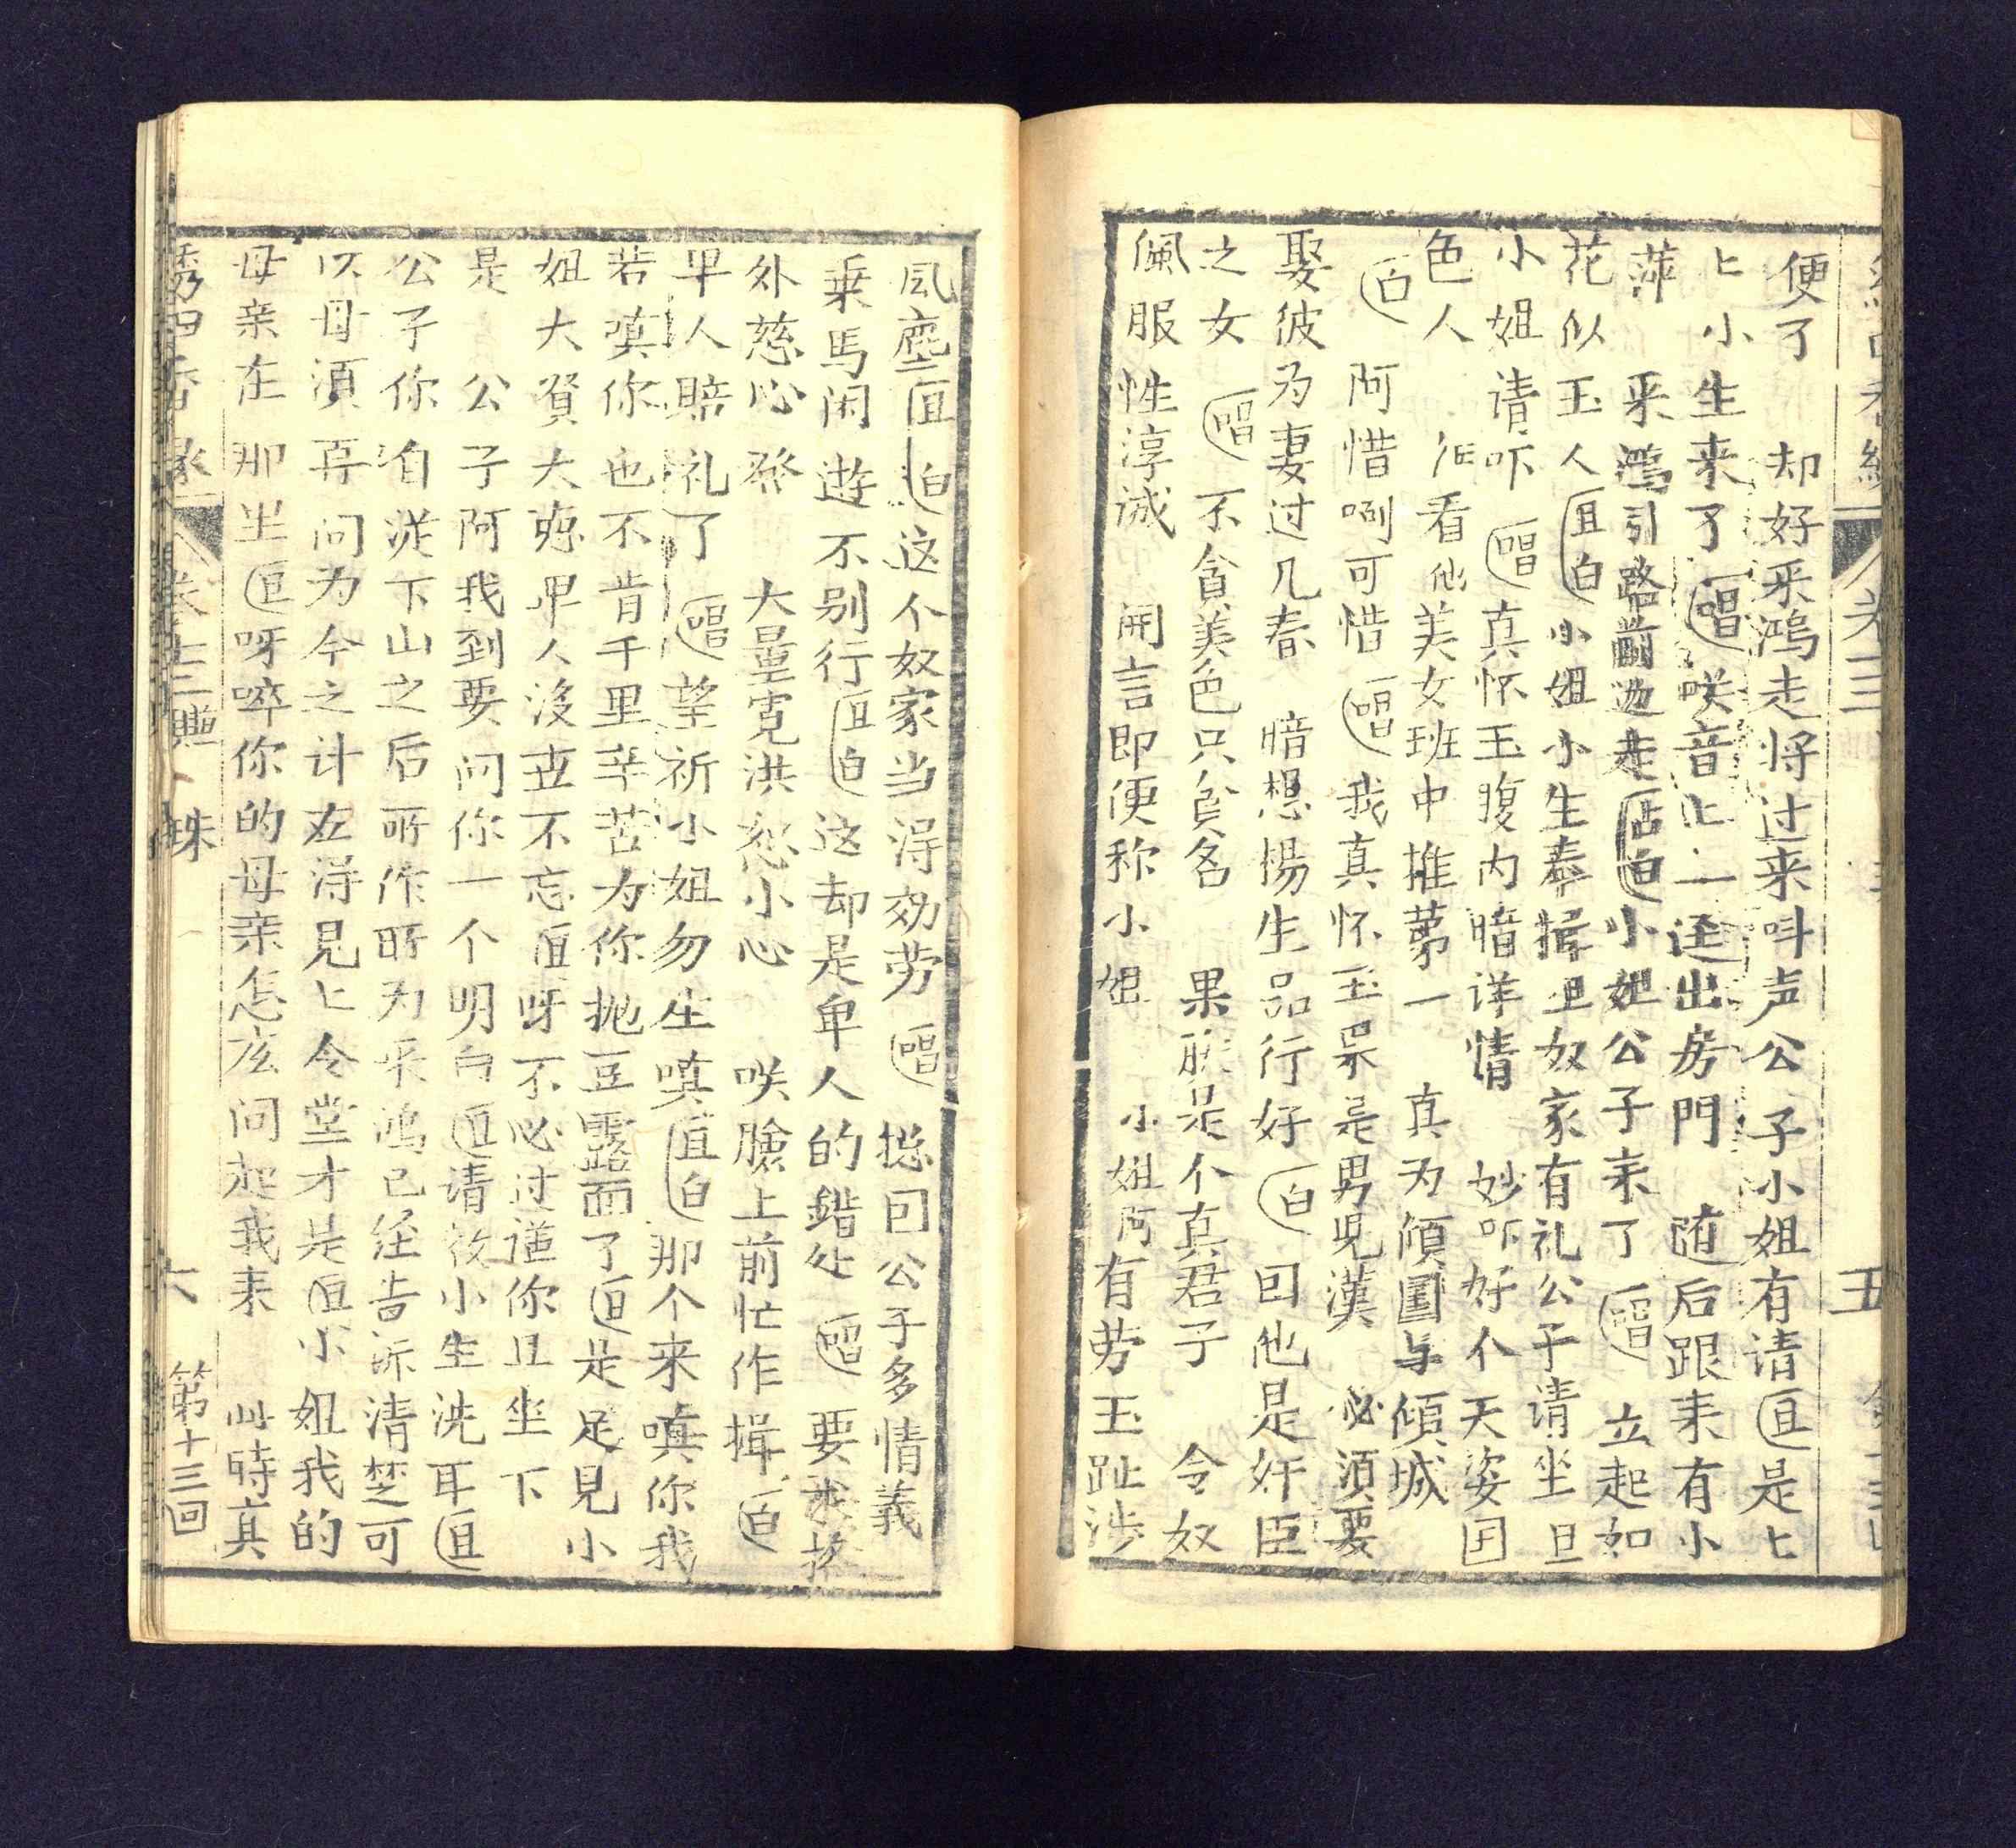 便了　却好采鴻走将过来呌声公子小姐有请旦是匕
匕小生来了唱咲音匕一迳出房門　随后跟来有小
萍　采鴻引路前边走占白小姐公子来了唱　立起如
花似玉人旦白小姐小生奉揖旦奴家有礼公子请坐旦
小姐请吓唱真怀玉腹内暗详情　妙吓好个天姿国
色人　看他美女班中推苐一　真为傾國与傾城
白　阿惜咧可惜唱我真怀玉呆是男児漢　必須要
娶彼为妻过几春　暗想楊生品行好白回他是奸臣
之女　唱不貪美色只貪名　果然是个真君子　令奴
佩服性淳诚　開言即便称小姐　小姐阿有劳玉趾涉
風塵旦白这个奴家当淂効劳唱　捴回公子多情義
乗馬闲遊不别行旦白这却是卑人的錯处唱　要求格
外慈心發　大量寬洪恕小心　咲臉上前忙作揖白
卑人賠礼了　唱望祈小姐勿生嗔旦白那个来嗔你我
若嗔你也不肯千里辛苦为你抛豆露面了旦是足見小
姐大賢大德卑人沒世不忘旦呀不必过謙你且坐下
是　公子阿我到要问你一个明白旦请教小生洗耳旦
公子你自従下山之后所作所为采鴻已経告訴清楚可
以母須再问为今之计在淂見匕令堂才是旦小姐我的
母亲在那里旦呀啐你的母亲怎広问起我来　此時真
卷三
五
六　第十三回